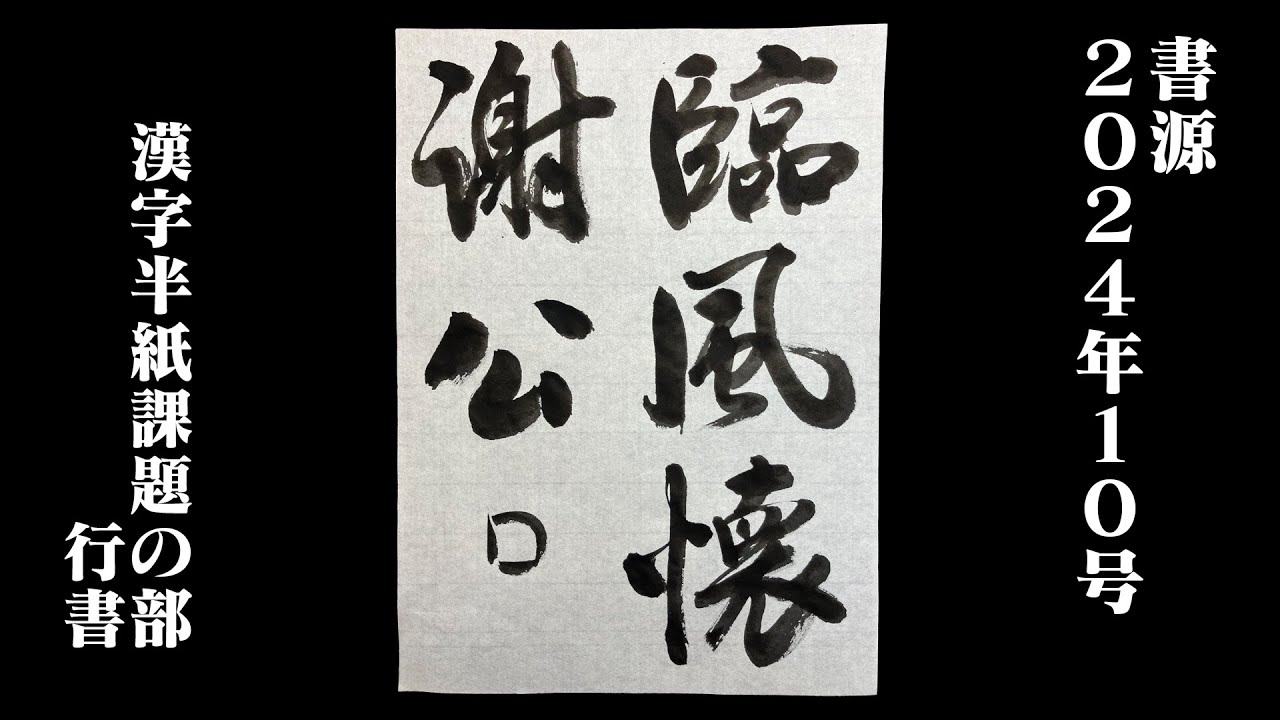 書源
2024年10号
臨風懐
謝公
漢字半紙課題の部
行書